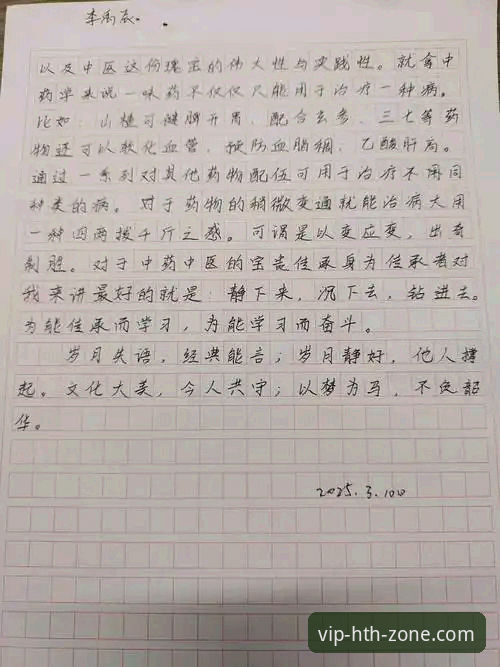 李禹辰。
以及中医这份瑰宝的伟大性与实践性。就拿中
药学来说一味药不仅仅只能用于治疗一种病。
比如：山楂可健脾开胃，配合玄参、三七等药
物还可以软化血管，预防血脂稠，乙酸肝高。
通过一系列对其他药物配伍可用于治疗不用同
种类的病。对于药物的稍微变通就能治病大用
一种四两拨千斤之感。可谓是以变应变，出奇
制胜。对于中药中医的宝贵传承身为传承者对
我来讲最好的就是：静下来，沉下去，钻进去。
为能传承而学习，为能学习而奋斗。
岁月失语，经典能言；岁月静好，他人撑
起。文化大美，今人共守；以梦为马，不负韶
华。
2025.3.10
vip-hth-zone.com